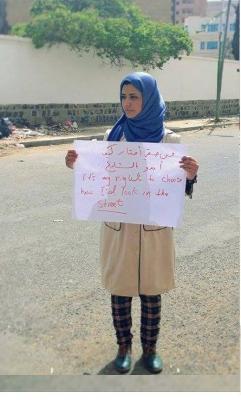 من حقي أختار كيف
أبدو الشارع
It's my right to choose
how I'd look in the
street